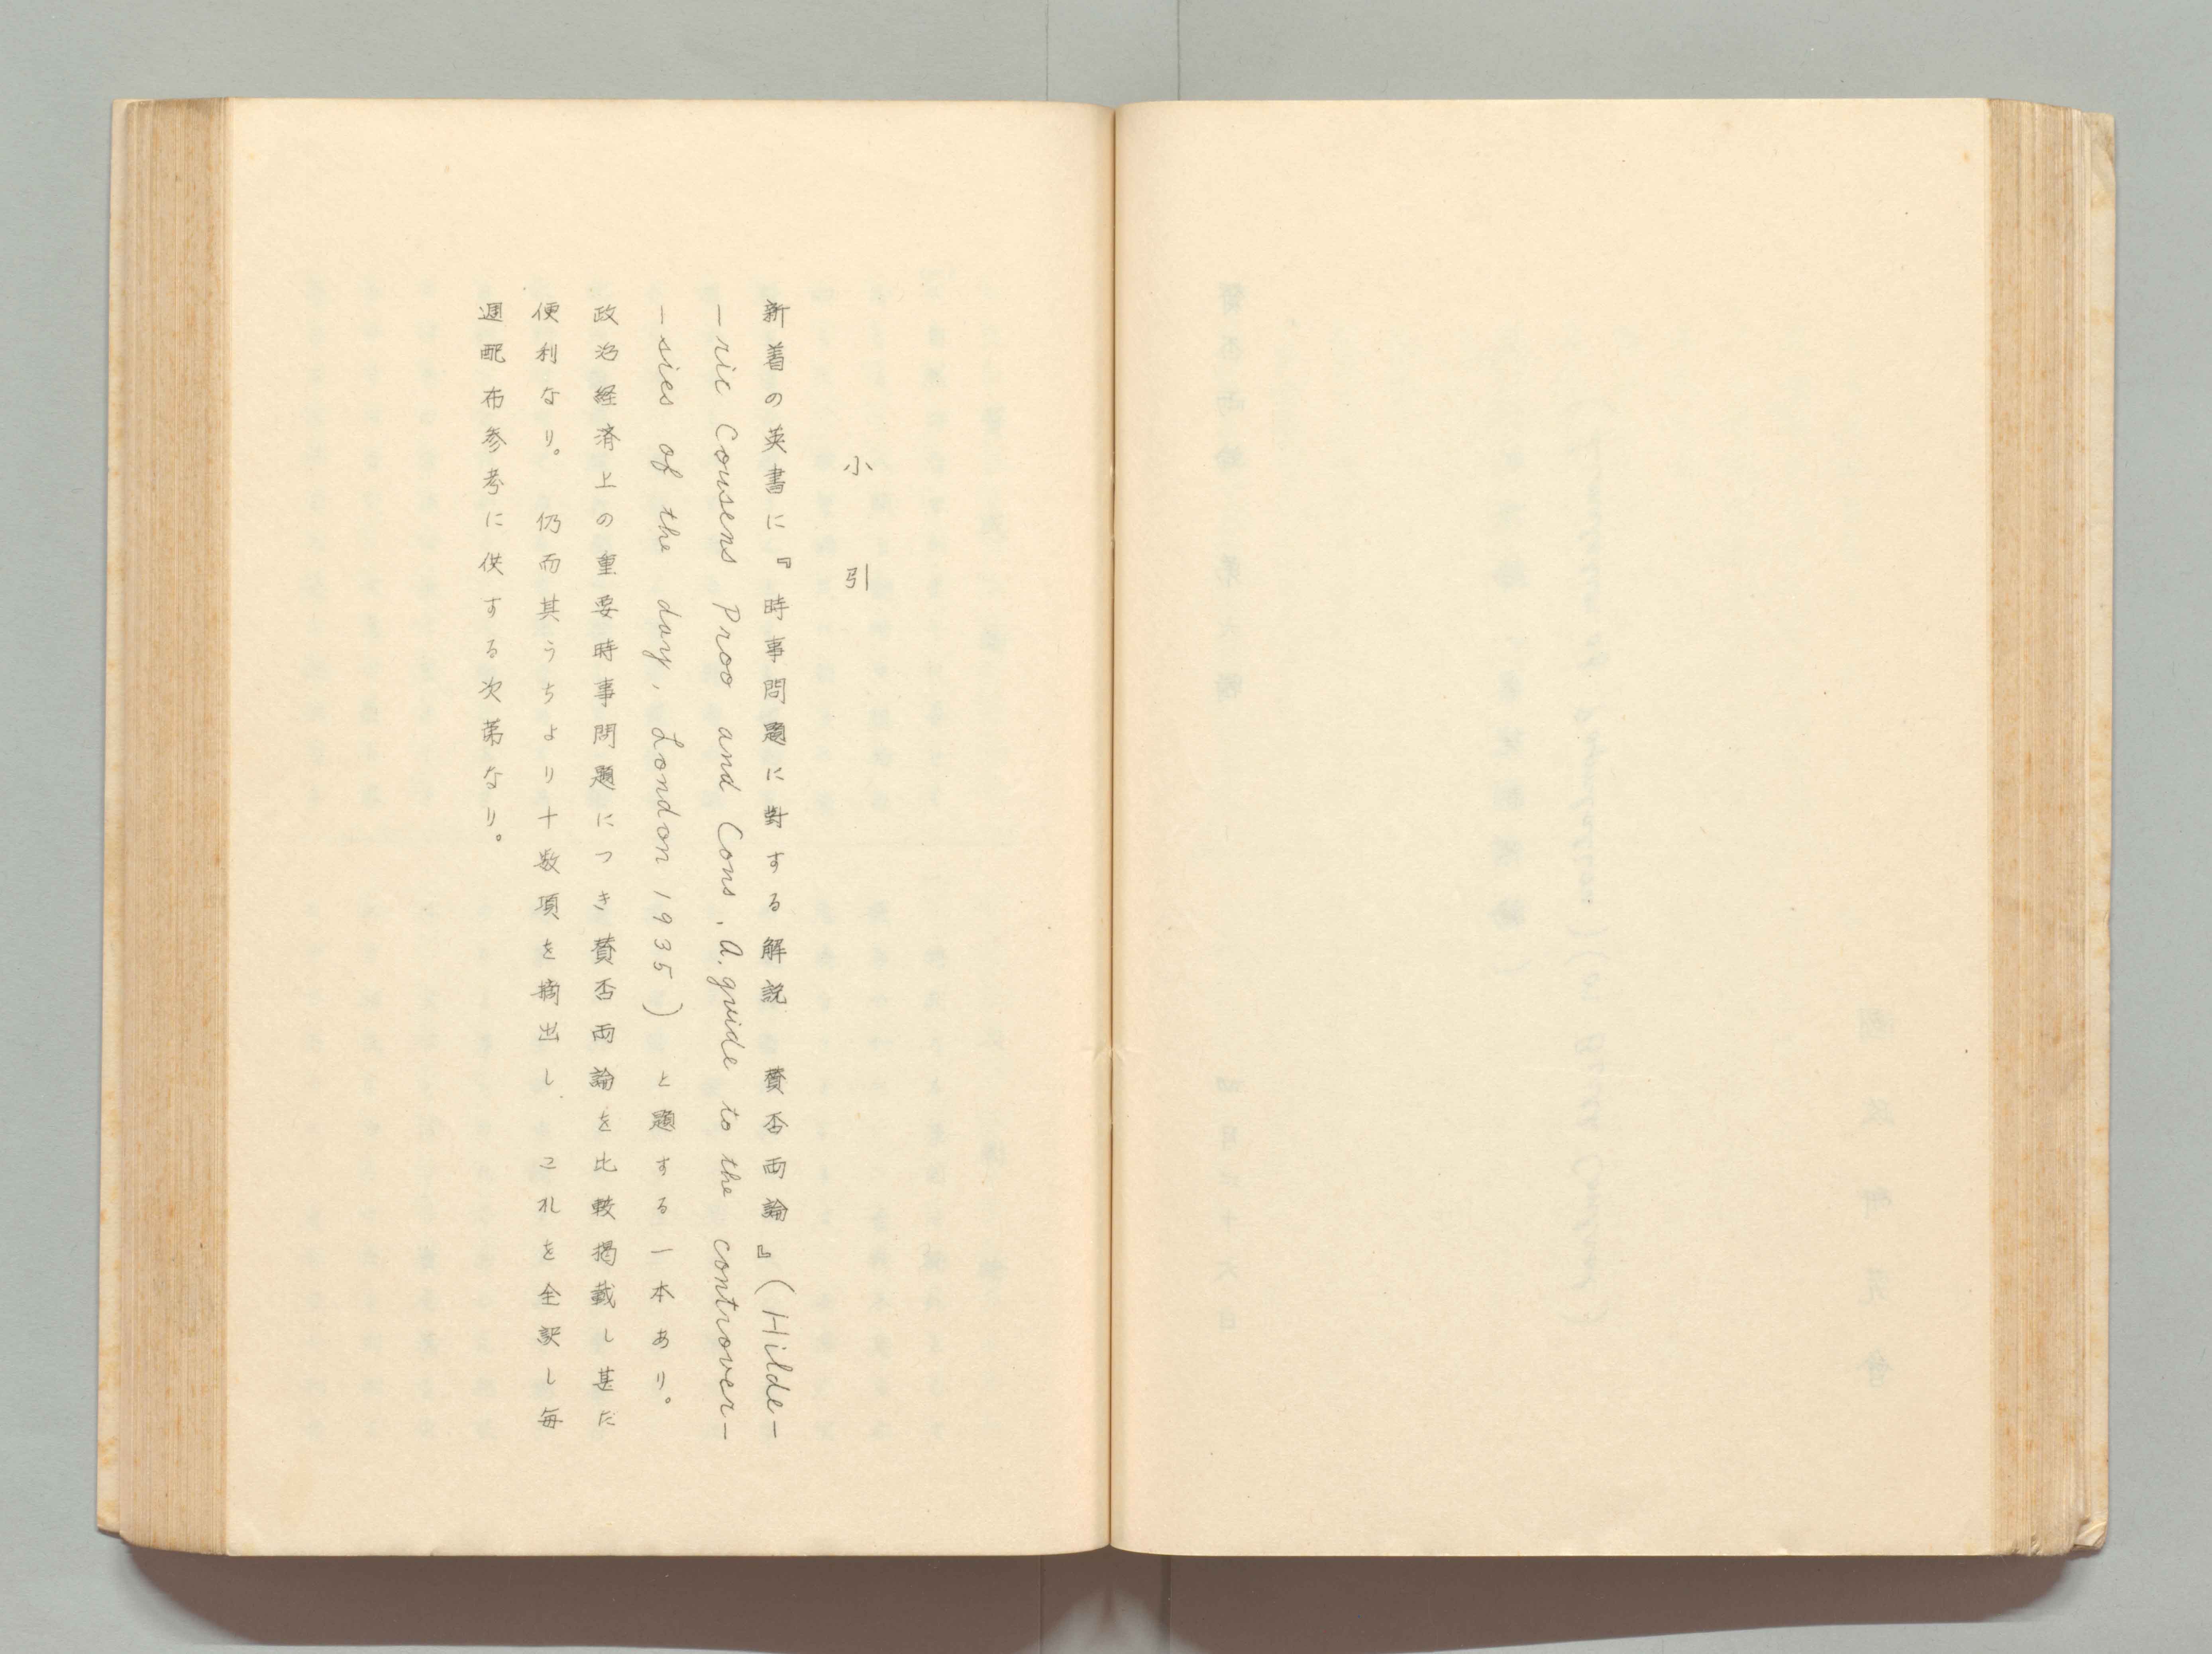 小引
新着の英書に『時事問題に對する解説 賛否両論』(Hilde-
-ric Cousens Proo and Cons, A. guide to the controver-
-sies of the day, London 1935) と題する一本あり。
政治経済上の重要時事問題につき賛否両論を比較掲載し甚だ
便利なり。仍而其うちより十数項を摘出し、これを全訳し毎
週配布参考に供する次第なり。